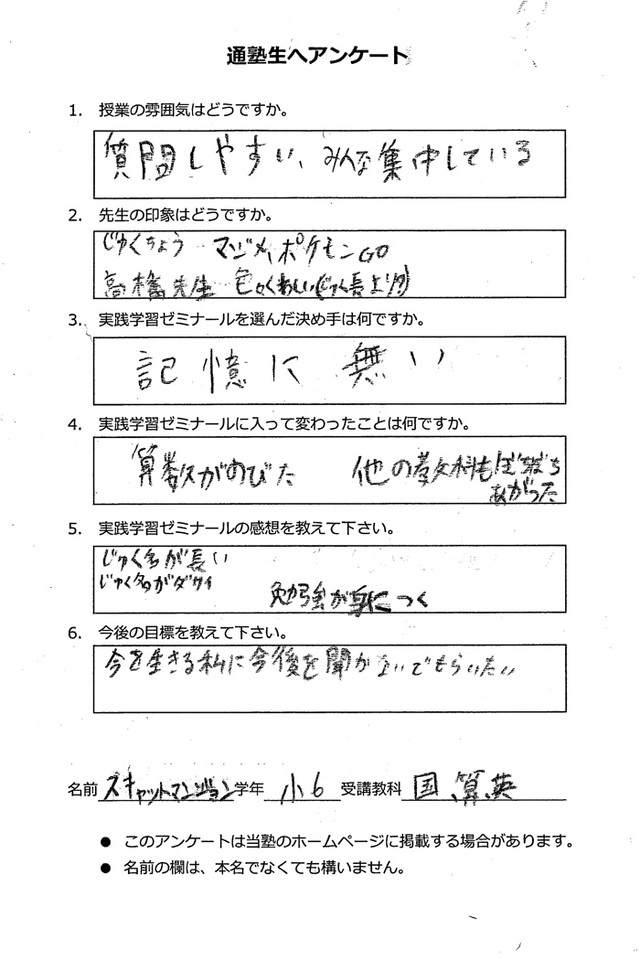 通塾生へアンケート
1. 授業の雰囲気はどうですか。
質問しやすい、みんな集中している
2. 先生の印象はどうですか。
じゅくちょう マジメ、ポケモンGO
高橋先生 色々くわしい(じゅく長より)
3. 実践学習ゼミナールを選んだ決め手は何ですか。
記憶に無い
4. 実践学習ゼミナールに入って変わったことは何ですか。
算数がのびた 他の教科もぼちぼち
あがった
5. 実践学習ゼミナールの感想を教えて下さい。
じゅく名が長い
じゅく名がダサイ 勉強が身につく
6. 今後の目標を教えて下さい。
今を生きる私に今後を聞かないでもらいたい
名前 スキャットマンジョン 学年 小6 受講教科 国、算、英
● このアンケートは当塾のホームページに掲載する場合があります。
● 名前の欄は、本名でなくても構いません。